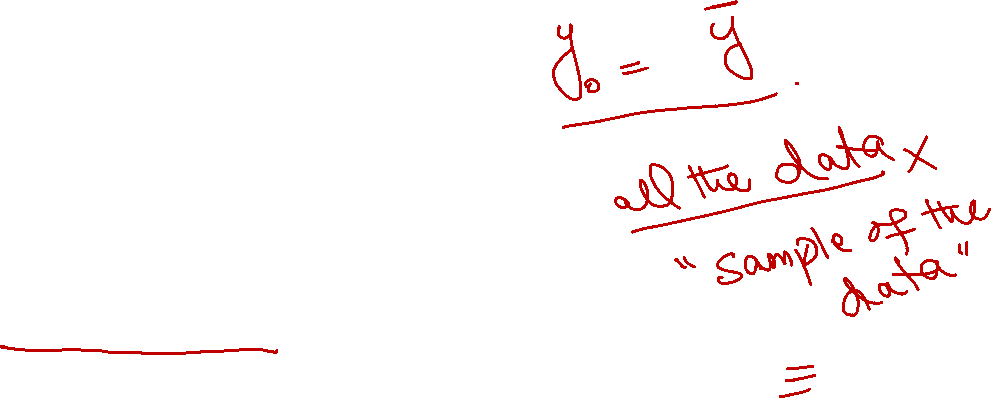 y₀ = ȳ .
all the data ×
"sample of the
data"
≡